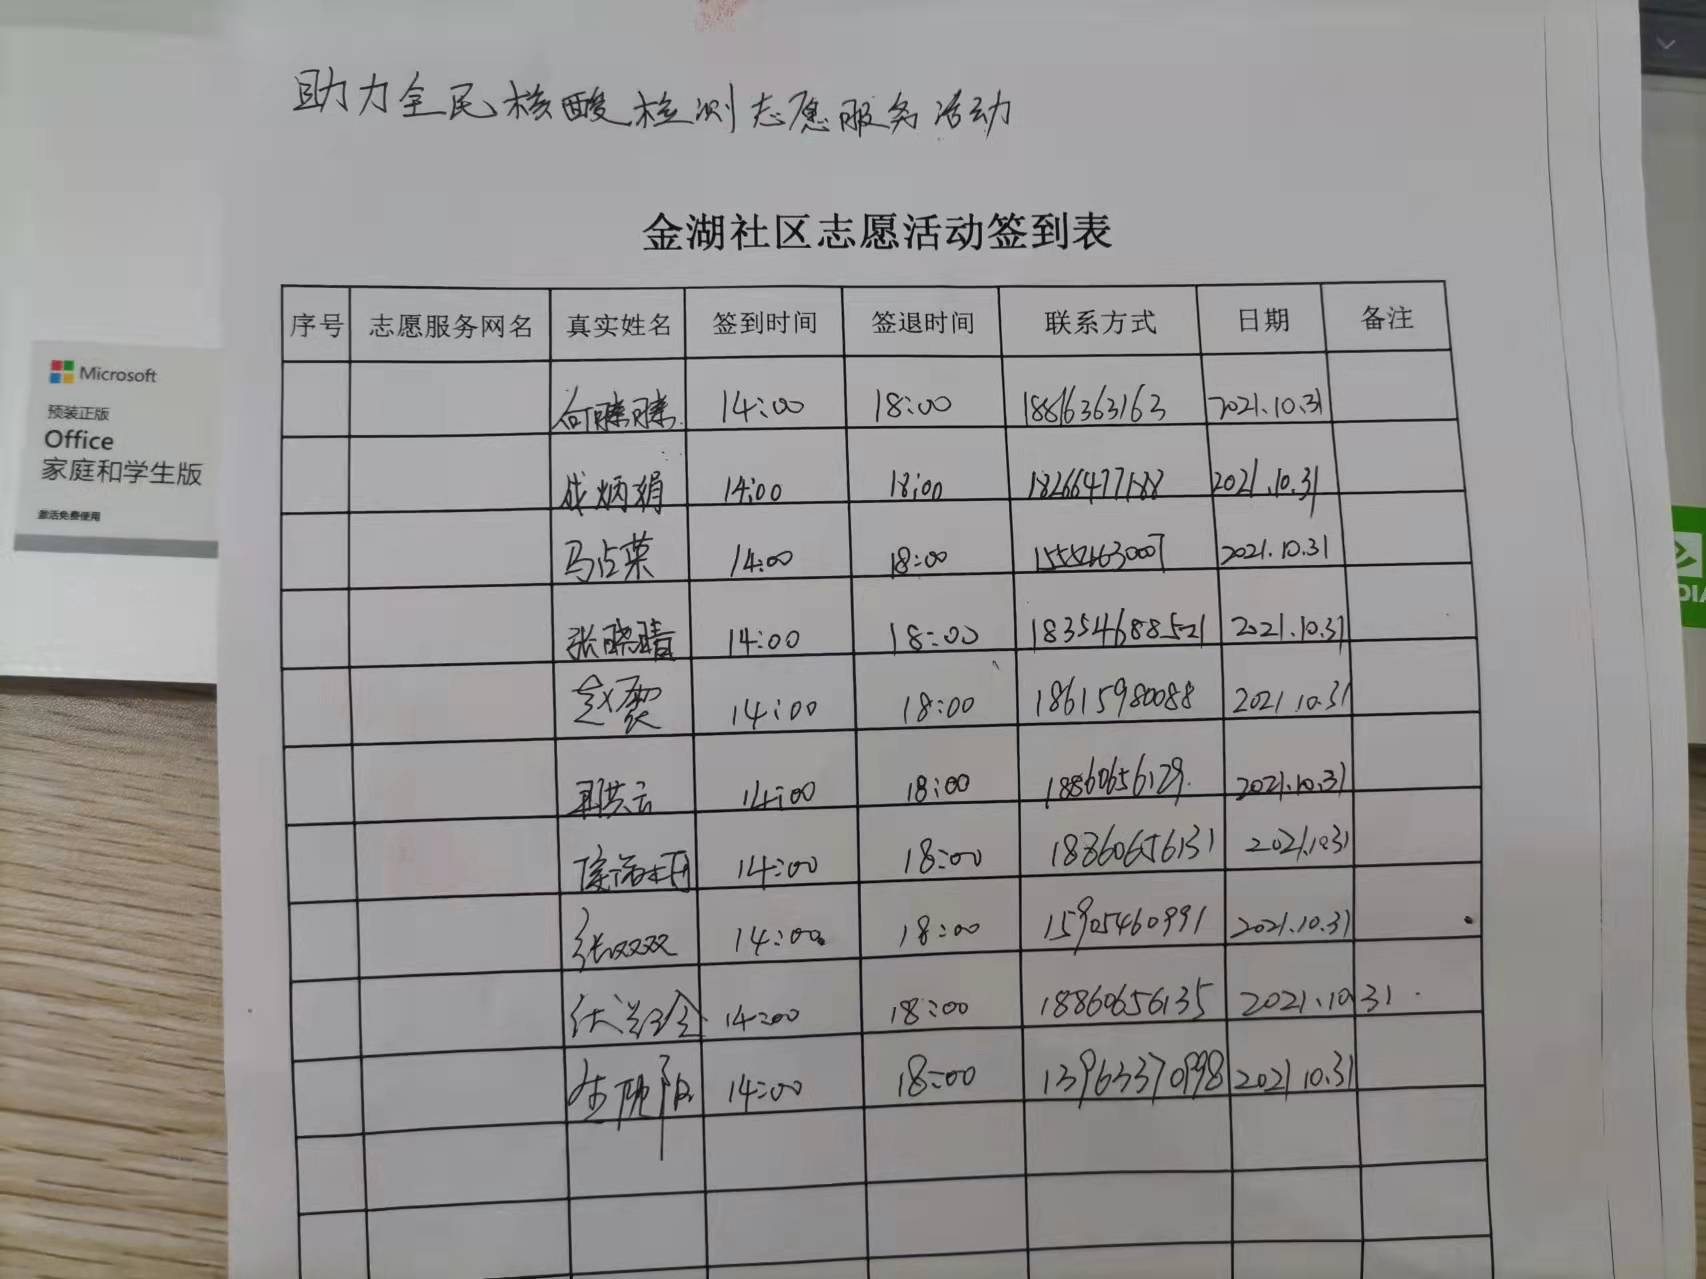 助力全民核酸检测志愿服务活动
金湖社区志愿活动签到表
序号 志愿服务网名 真实姓名 签到时间 签退时间 联系方式 日期 备注
14:00 18:00 18816363163 2021.10.31
成炳娟 14:00 18:00 18266477188 2021.10.31
马占菜 14:00 18:00 2021.10.31
张晓晴 14:00 18:00 18354688521 2021.10.31
赵霞 14:00 18:00 18615980088 2021.10.31
14:00 18:00 18860656129 2021.10.31
14:00 18:00 18860656131 2021.10.31
张双双 14:00 18:00 15905460991 2021.10.31
14:00 18:00 18860656135 2021.10.31
14:00 18:00 2021.10.31
Microsoft
预装正版
Office
家庭和学生版
激活免费使用